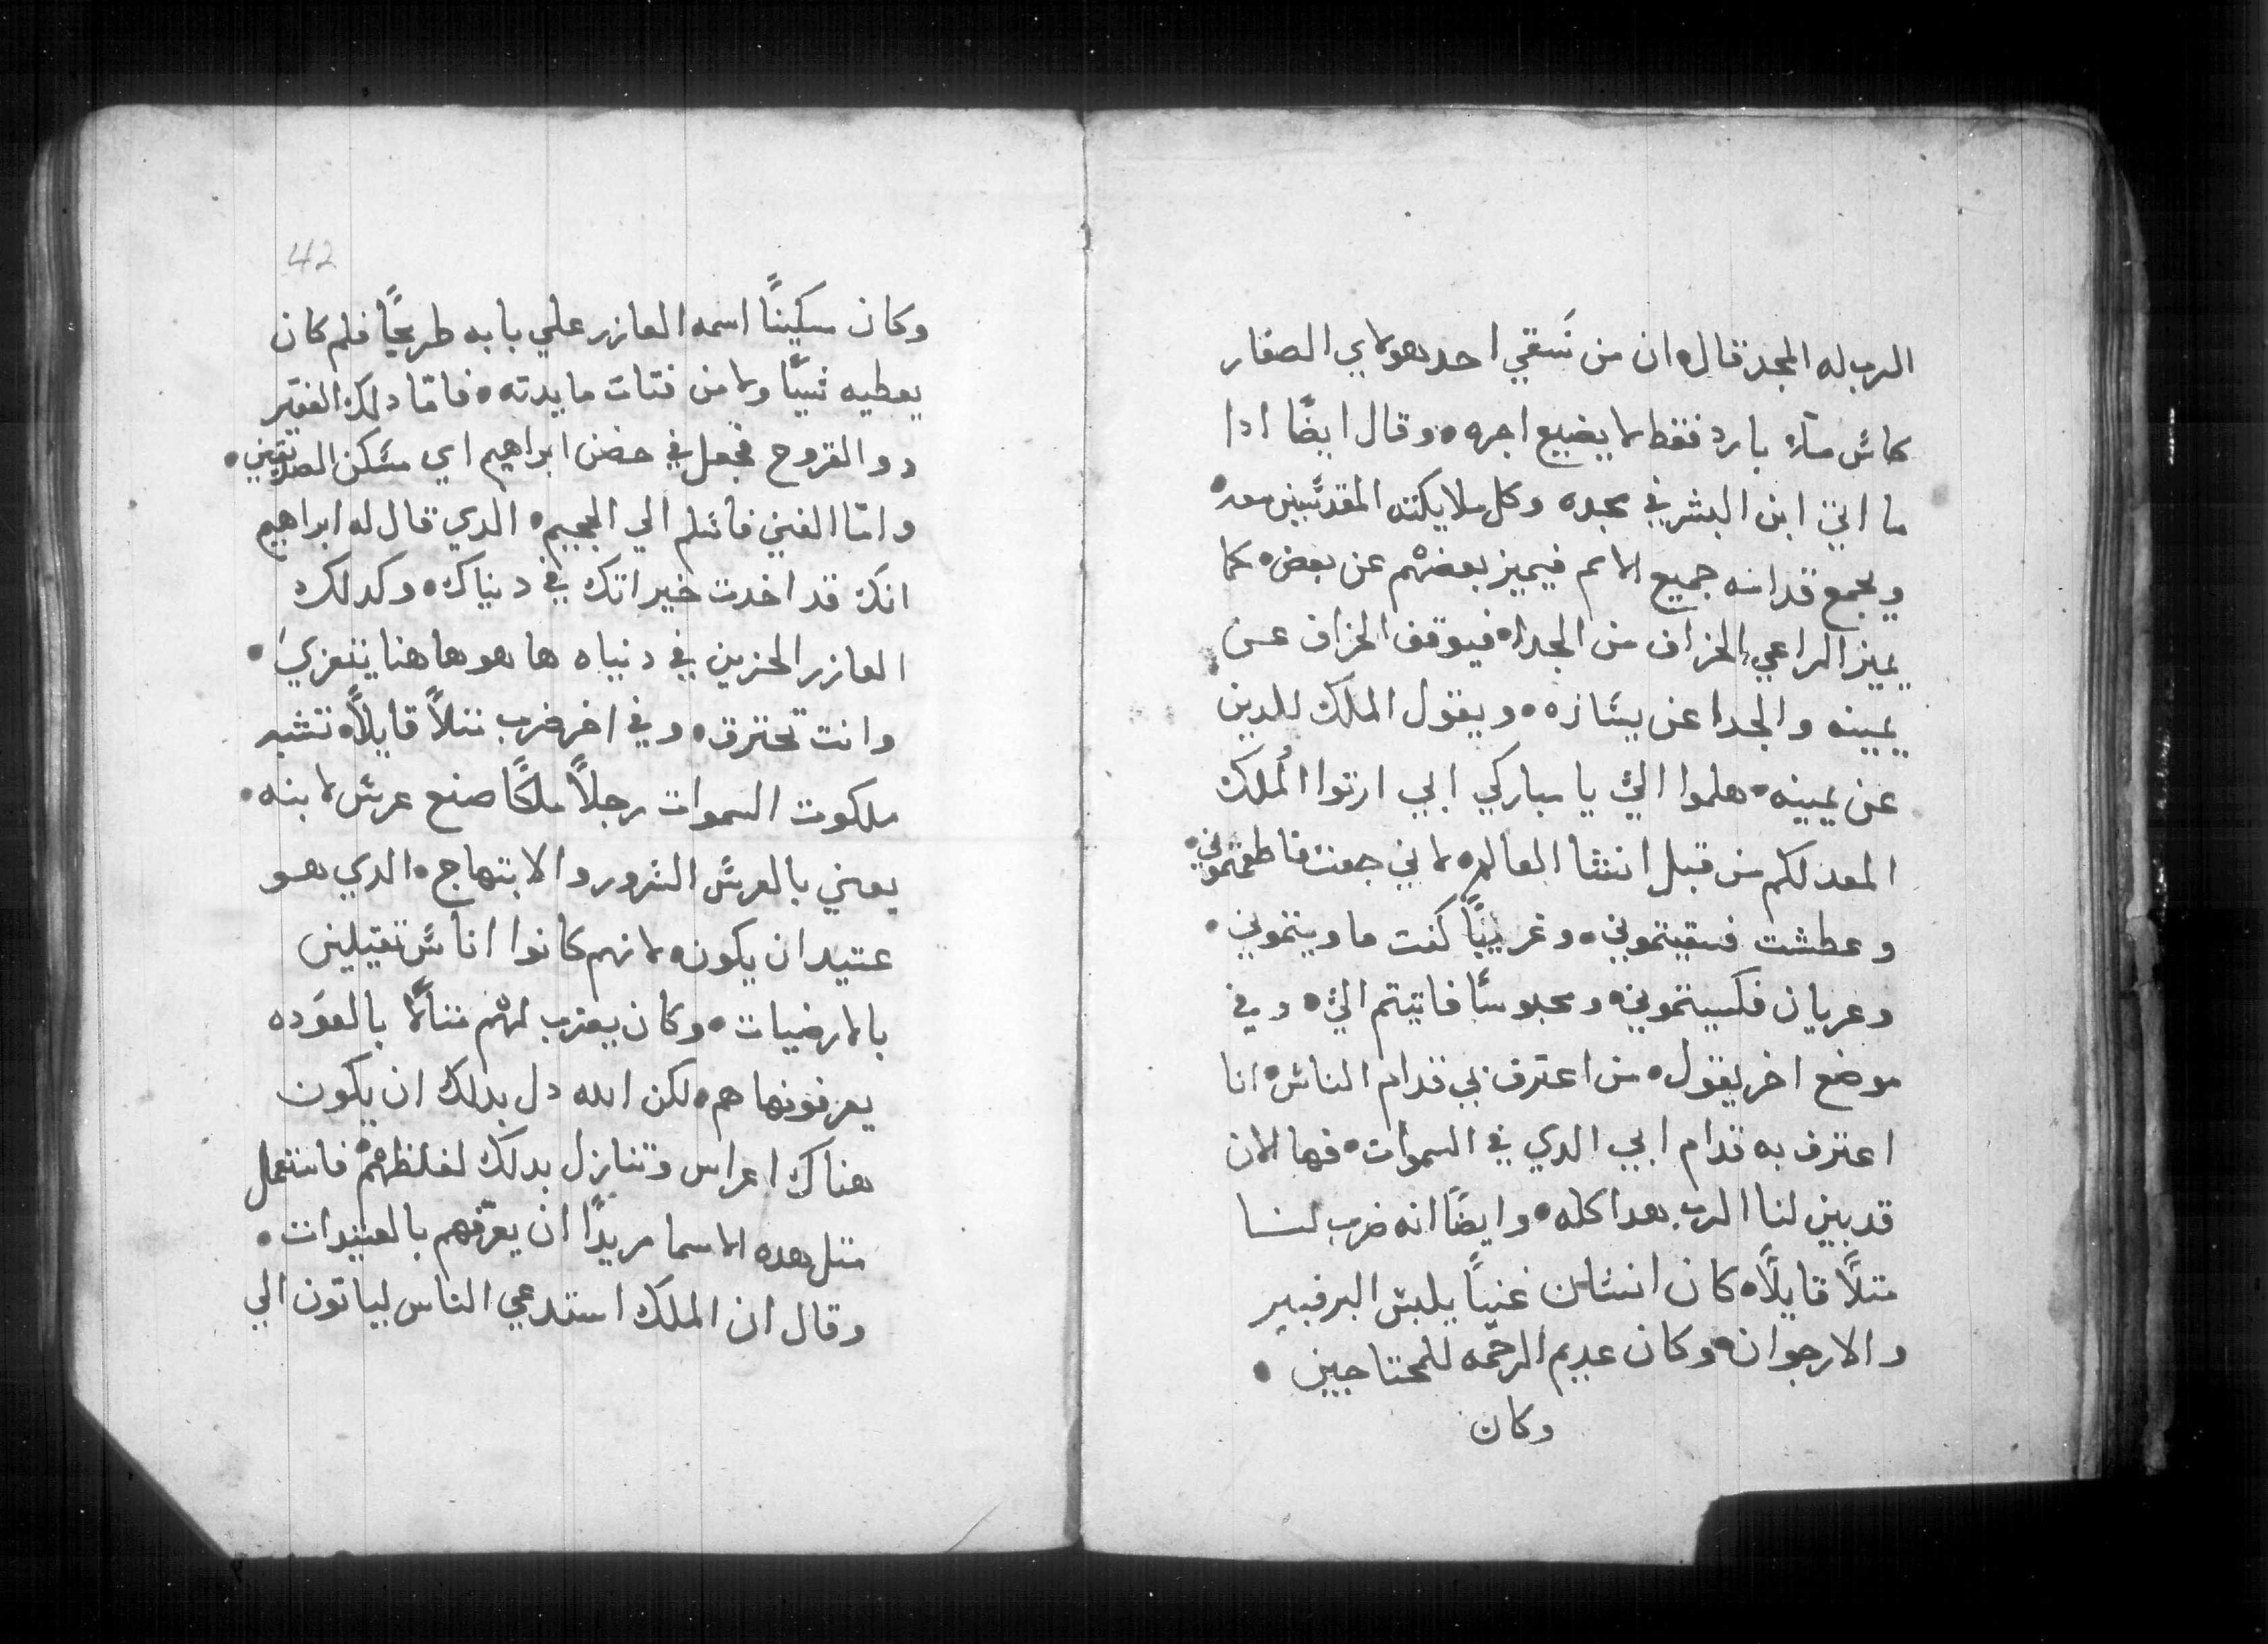 الرب له المجد قال• ان من سَقي احد هولاي الصغار
كاس مآء بارد فقط لا يضيع اجره• وقال ايضًا ادا
ما اتي ابن البشر في مجده وكل ملايكته المقدسين معه•
ويجمع قدامه جميع الامم فيميز بعضهم عن بعض• كما
يميز الراعي الخراف من الجدا• فيوقف الخراف عن
يمينه والجدا عن يساره• ويقول الملك للدين
عن يمينه• هلموا اليّ يا مباركي ابي ارتوا المُلك
المعد لكم من قبل انشا العالم• لاني جعت فاطعمتموني•
وعطشت فسقيتموني• وغريبًا كنت فاويتموني•
وعريان فكسيتموني• ومحبوسًا فاتيتم اليّ• وفي
موضع اخر يقول• من اعترف بي قدام الناس• انا
اعترف به قدام ابي الدي في السموات• فها الان
قد بين لنا الرب هدا كله• وايضًا انه ضرب لنا
متلًا قايلًا• كان انسان غنيًا يلبس البرفير
والارجوان• وكان عديم الرحمه للمحتاجين•
وكان
42
وكان مسكينًا اسمه العازر علي بابه طريحًا فلم كان
يعطيه شيًا ولا من فتات مايدته• فامّا دلك الفقير
دو القروح فجعل في حضن ابراهيم اي مسكن الصديقين•
وامّا الغني فاسلم الي الجحيم• الدي قال له ابراهيم
انك قد اخدت خيراتك في دنياك• وكدلك
العازر الحزين في دنياه ها هو هاهنا يتعزي•
وانت تحترق• وفي اخر ضرب متلًا قايلًا• تشبه
ملكوت السموات رجلًا ملكًا صنع عرس لابنه•
يعني بالعرس السرور والابتهاج• الدي هو
عتيد ان يكون• لانهم كانوا اناس تقيلين
بالارضيات• وكان يضرب لهم متالًا بالعَوده
يعرفونها هم• لكن الله دل بدلك ان يكون
هناك اعراس وتنازل بدلك لغلظهم فاستعمل
متل هده الاسما مريدًا ان يعرّفهم بالعتيدات•
وقال ان الملك استدعي الناس لياتون الي